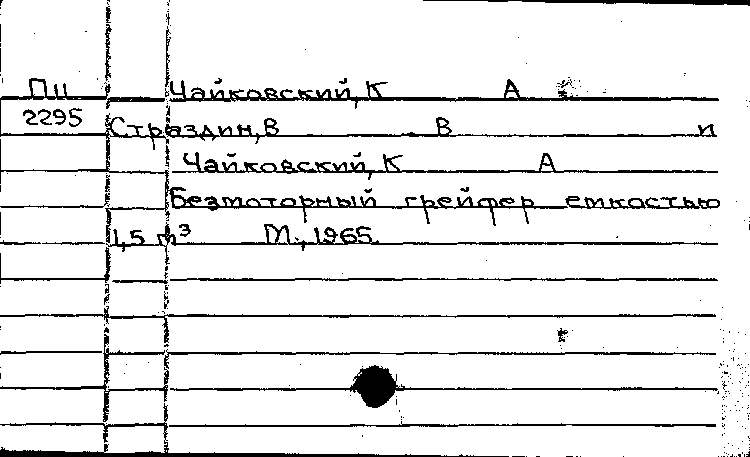 Пц Чайковский, К А
2295 Страздин, В В и
Чайковский, К А
Безмоторный грейфер емкостью
1,5 m³ М., 1965.